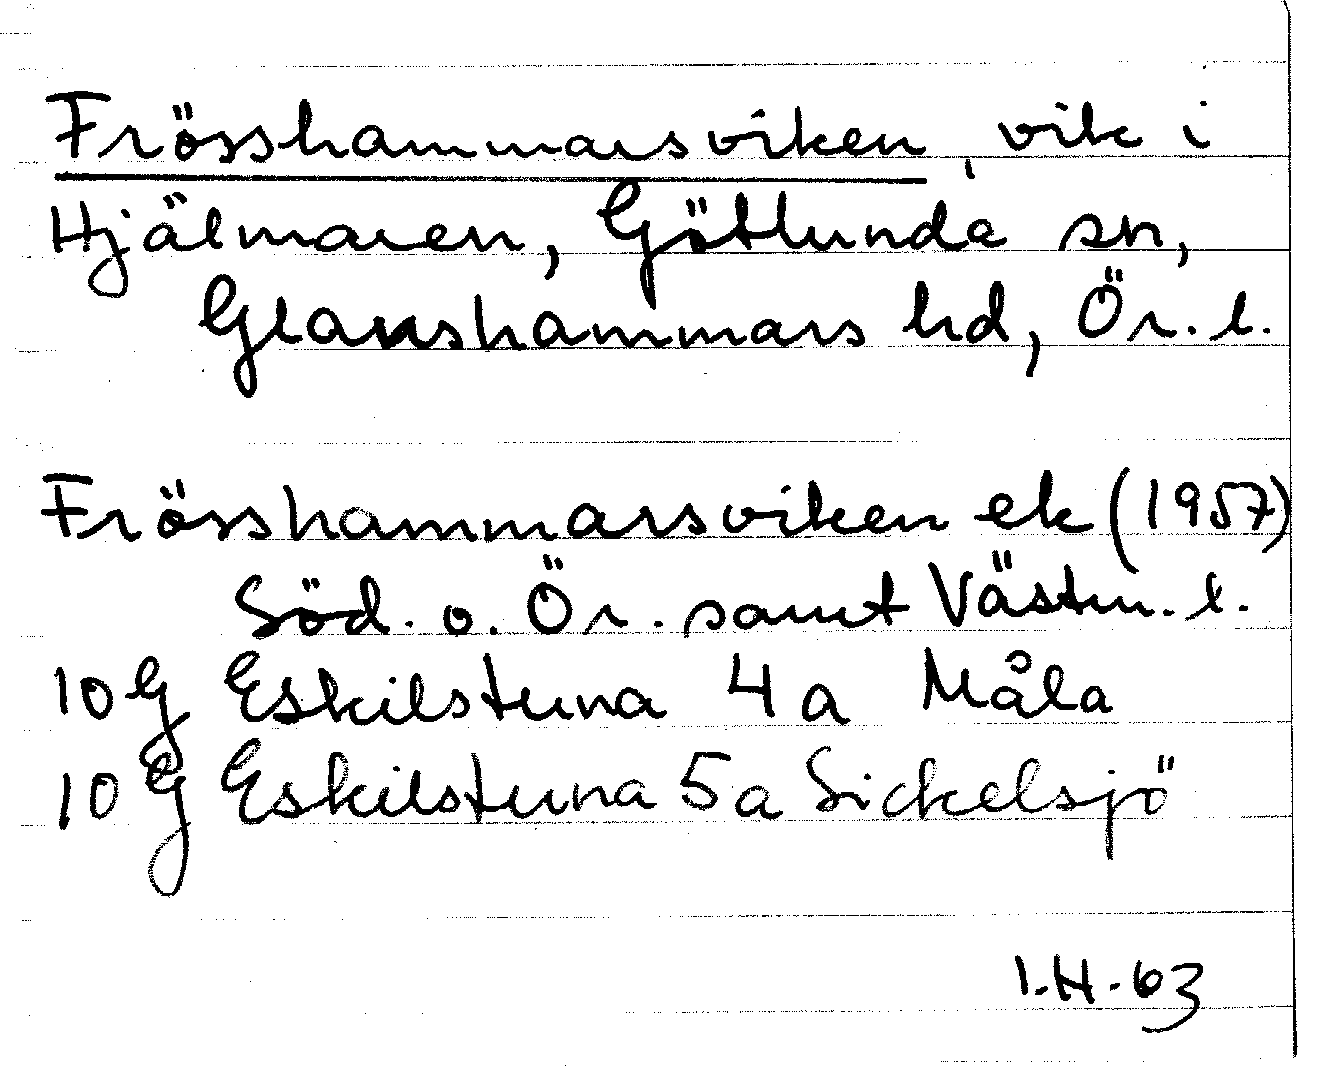 Frösshammarsviken, vik i
Hjälmaren, Götlunda sn,
Glanshammars hd, Ör. l.
Frösshammarsviken ek (1957)
Söd. o. Ör. samt Västm. l.
10 G Eskilstuna 4a Måla
10 G Eskilstuna 5a Sickelsjö
I.H. 63